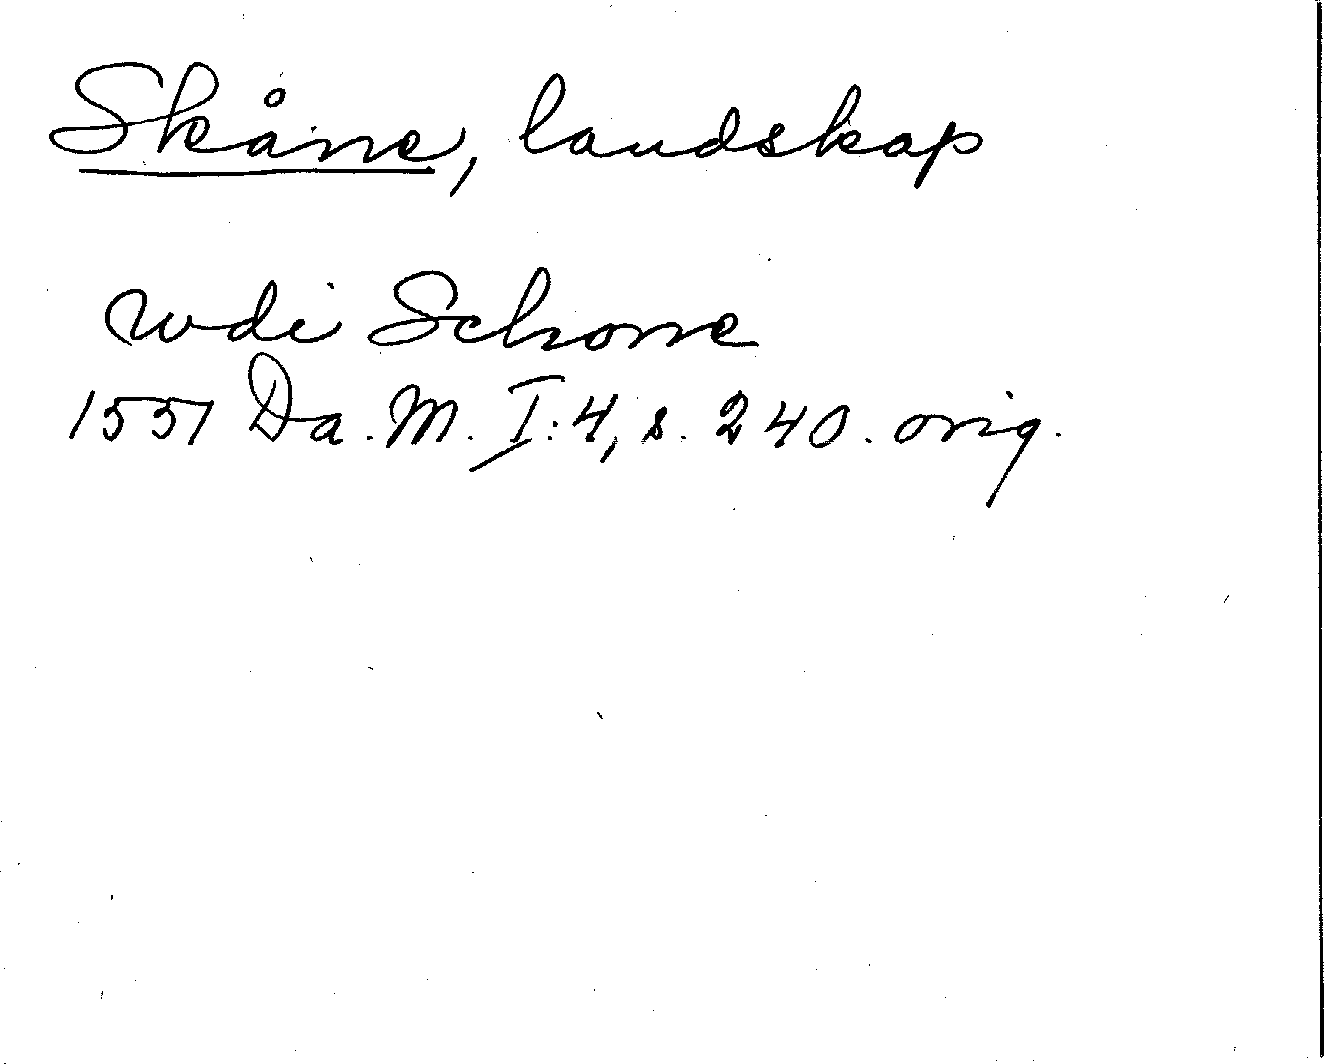 Skåne, landskap
wdi Schone
1551 Da. M. I:4, s. 240. orig.